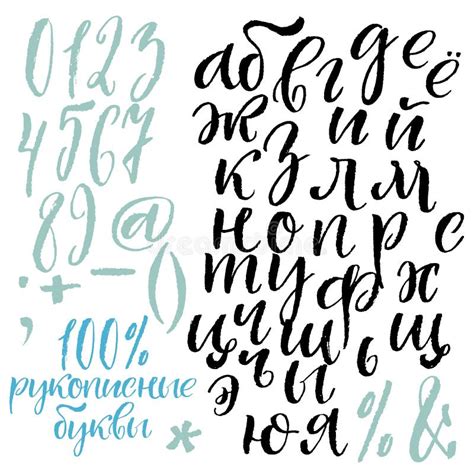 0123
4567
89@
.+-()
,
100%
рукописные
буквы
*
абвгдеё
жзий
клм
нопрс
туфх
цчшьщ
эъы
юя%&